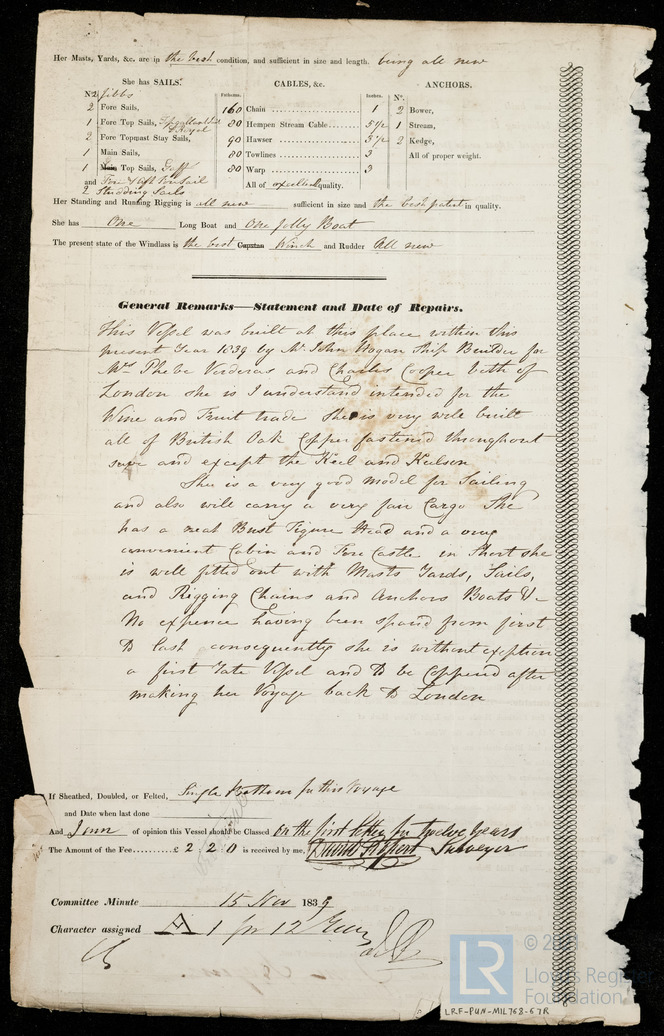 Her Masts, Yards, &c. are in the best condition, and sufficient in size and length. being all new
She has SAILS. CABLES, &c. ANCHORS.
No. 2 Jibbs Fathoms. Inches. No.
2 Fore Sails, 160 Chain 1 2 Bower,
1 Fore Top Sails, & Royal 80 Hempen Stream Cable 5 1/2 1 Stream,
2 Fore Topmast Stay Sails, 90 Hawser 5 1/2 2 Kedge,
1 Main Sails, 80 Towlines 3 All of proper weight.
1 Main Top Sails, Gaff 80 Warp 3
and Fore & Aft All of excellent quality.
2 Studding Sails
Her Standing and Running Rigging is all new sufficient in size and the best patent in quality.
She has One Long Boat and One Jolly Boat
The present state of the Windlass is the best Capstan Winch and Rudder All new
General Remarks—Statement and Date of Repairs.
This Vessel was built at this place within this
present Year 1839 by Mr. John Hogan Ship Builder for
Mrs Phebe and Charles Cooper both of
London she is I understand intended for the
Wine and Fruit trade she is very well built
all of British Oak Copper fastened throughout
save and except the Keel and Keelson
She is a very good model for Sailing
and also will carry a very fair Cargo She
has a neat Bust Figure Head and a very
convenient Cabin and Fore Castle in Short she
is well fitted out with Masts Yards, Sails,
and Rigging Chains and Anchors Boats &c
No expence having been spared from first
to last consequently she is without exception
a first rate Vessel and to be Coppered after
making her Voyage back to London
If Sheathed, Doubled, or Felted, Single Bottom for this Voyage
and Date when last done
And I am of opinion this Vessel should be Classed on the first letter for twelve Years
The Amount of the Fee £ 2 : 2 : 0 is received by me, David Surveyor
Committee Minute 15 Nov 1839
Character assigned A 1 for 12 Years
LR
Lloyd's Register
Foundation
LRF-PUN-MIL768-67R